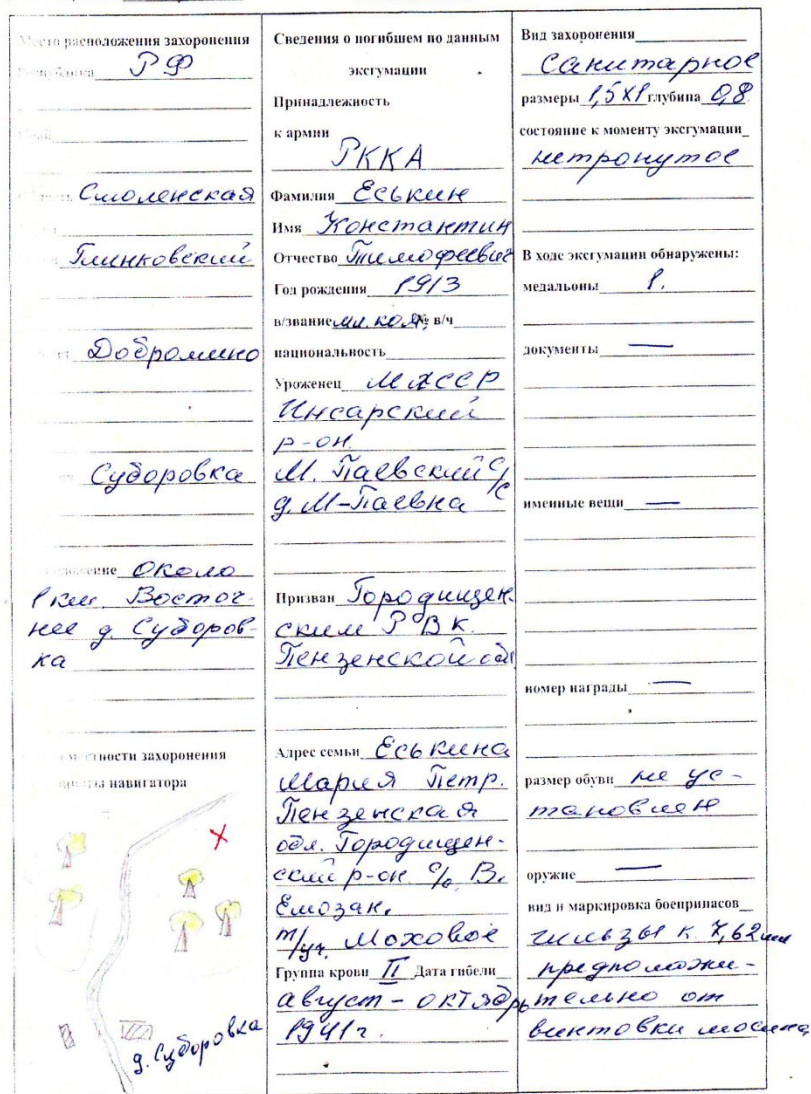 Место расположения захоронения
Республика РФ
Смоленская
Глинковский
Добромино
Суборовка
около
1 км. Восточ-
нее д. Суборов-
ка
местности захоронения
навигатора
д. Суборовка
Сведения о погибшем по данным
эксгумации
Принадлежность
к армии
РККА
Фамилия Еськин
Имя Константин
Отчество Тимофеевич
Год рождения 1913
в/звание мл. ком. № в/ч
национальность
Уроженец МАССР
Инсарский
р-он.
М. Паевский с/с
д. М-Паевка
Призван Городищен-
ским РВК.
Пензенской обл
Адрес семьи Еськина
Мария Петр.
Пензенская
обл. Городищен-
ский р-он. с/с В.
Елюзан.
т/уч. Моховое
Группа крови II Дата гибели
август - октябрь
1941 г.
Вид захоронения
санитарное
размеры 1,5х1 глубина 0,8
состояние к моменту эксгумации
нетронутое
В ходе эксгумации обнаружены:
медальоны 1.
документы —
именные вещи —
номер награды —
размер обуви не ус-
тановлен
оружие —
вид и маркировка боеприпасов
гильзы к 7,62мм
предположи-
тельно от
винтовки мосина